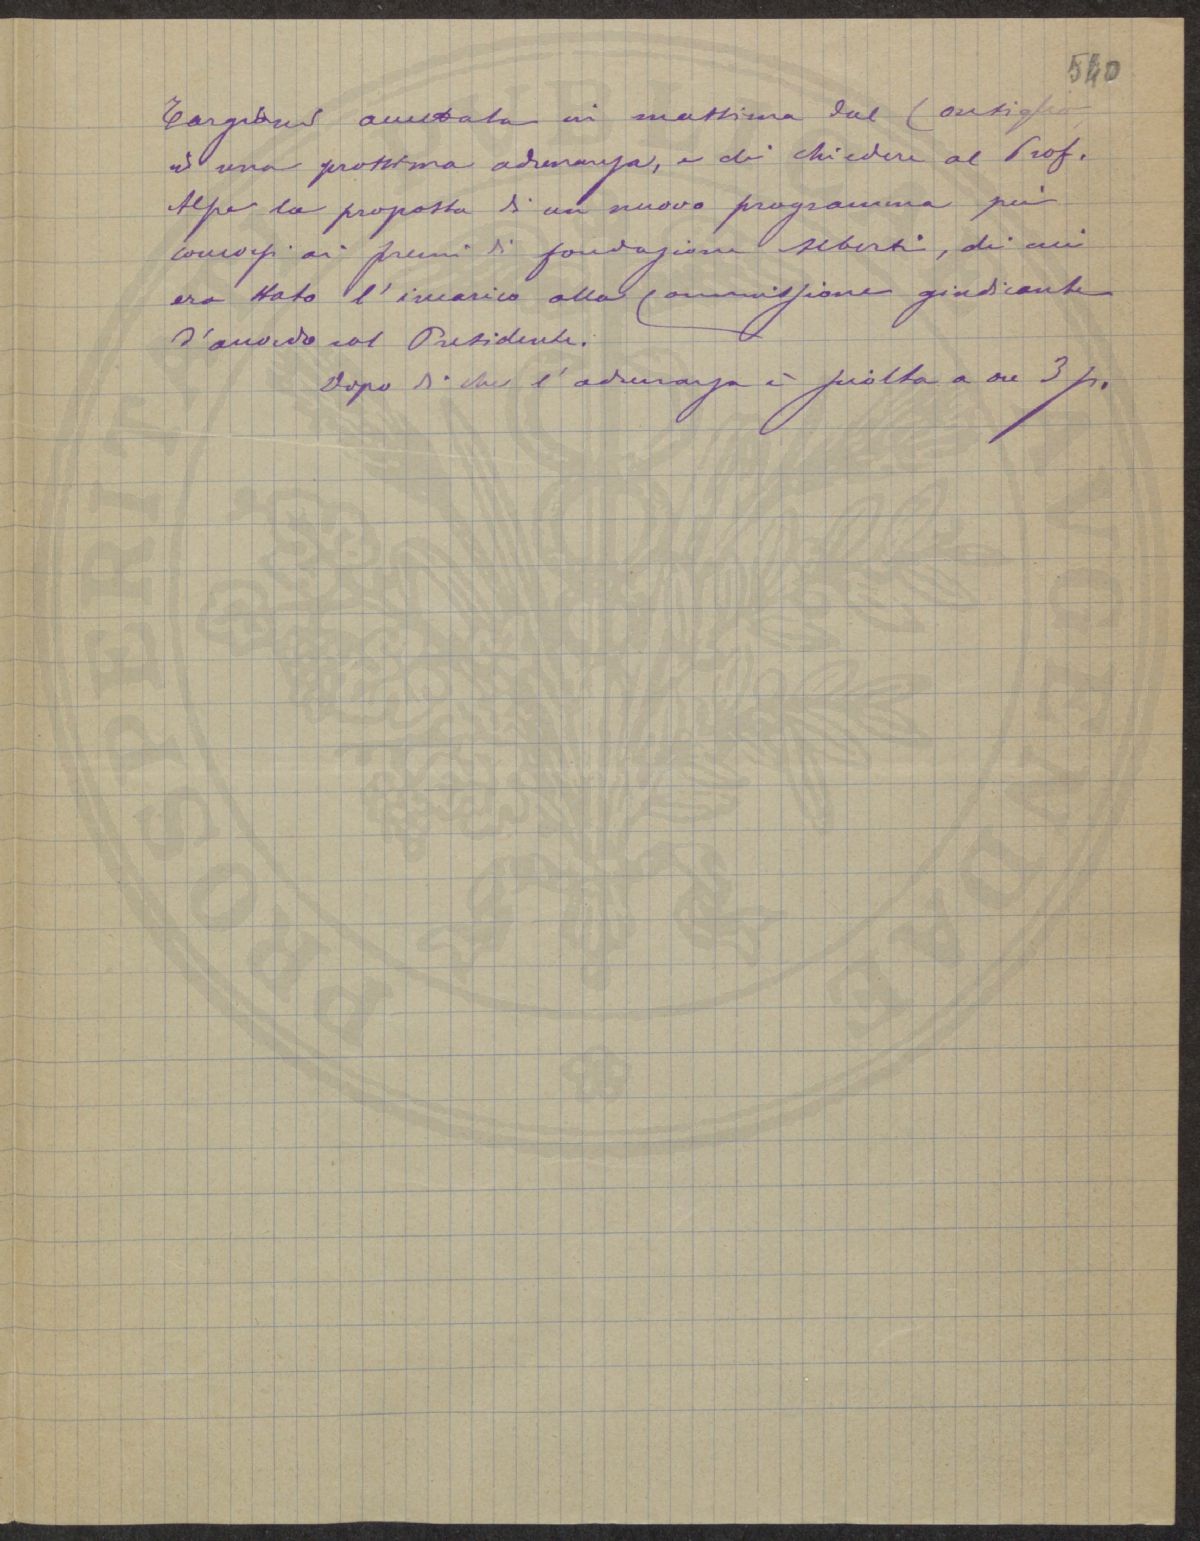 540
Targioni accettata in massima dal Consiglio
in una prossima adunanza, e di chiedere al Prof.
Alpe la proposta di un nuovo programma pei
concorsi ai premi di fondazione Alberti, di cui
era stato l'incarico alla Commissione giudicante
d'accordo col Presidente.
Dopo di che l'adunanza è sciolta a ore 3 p.